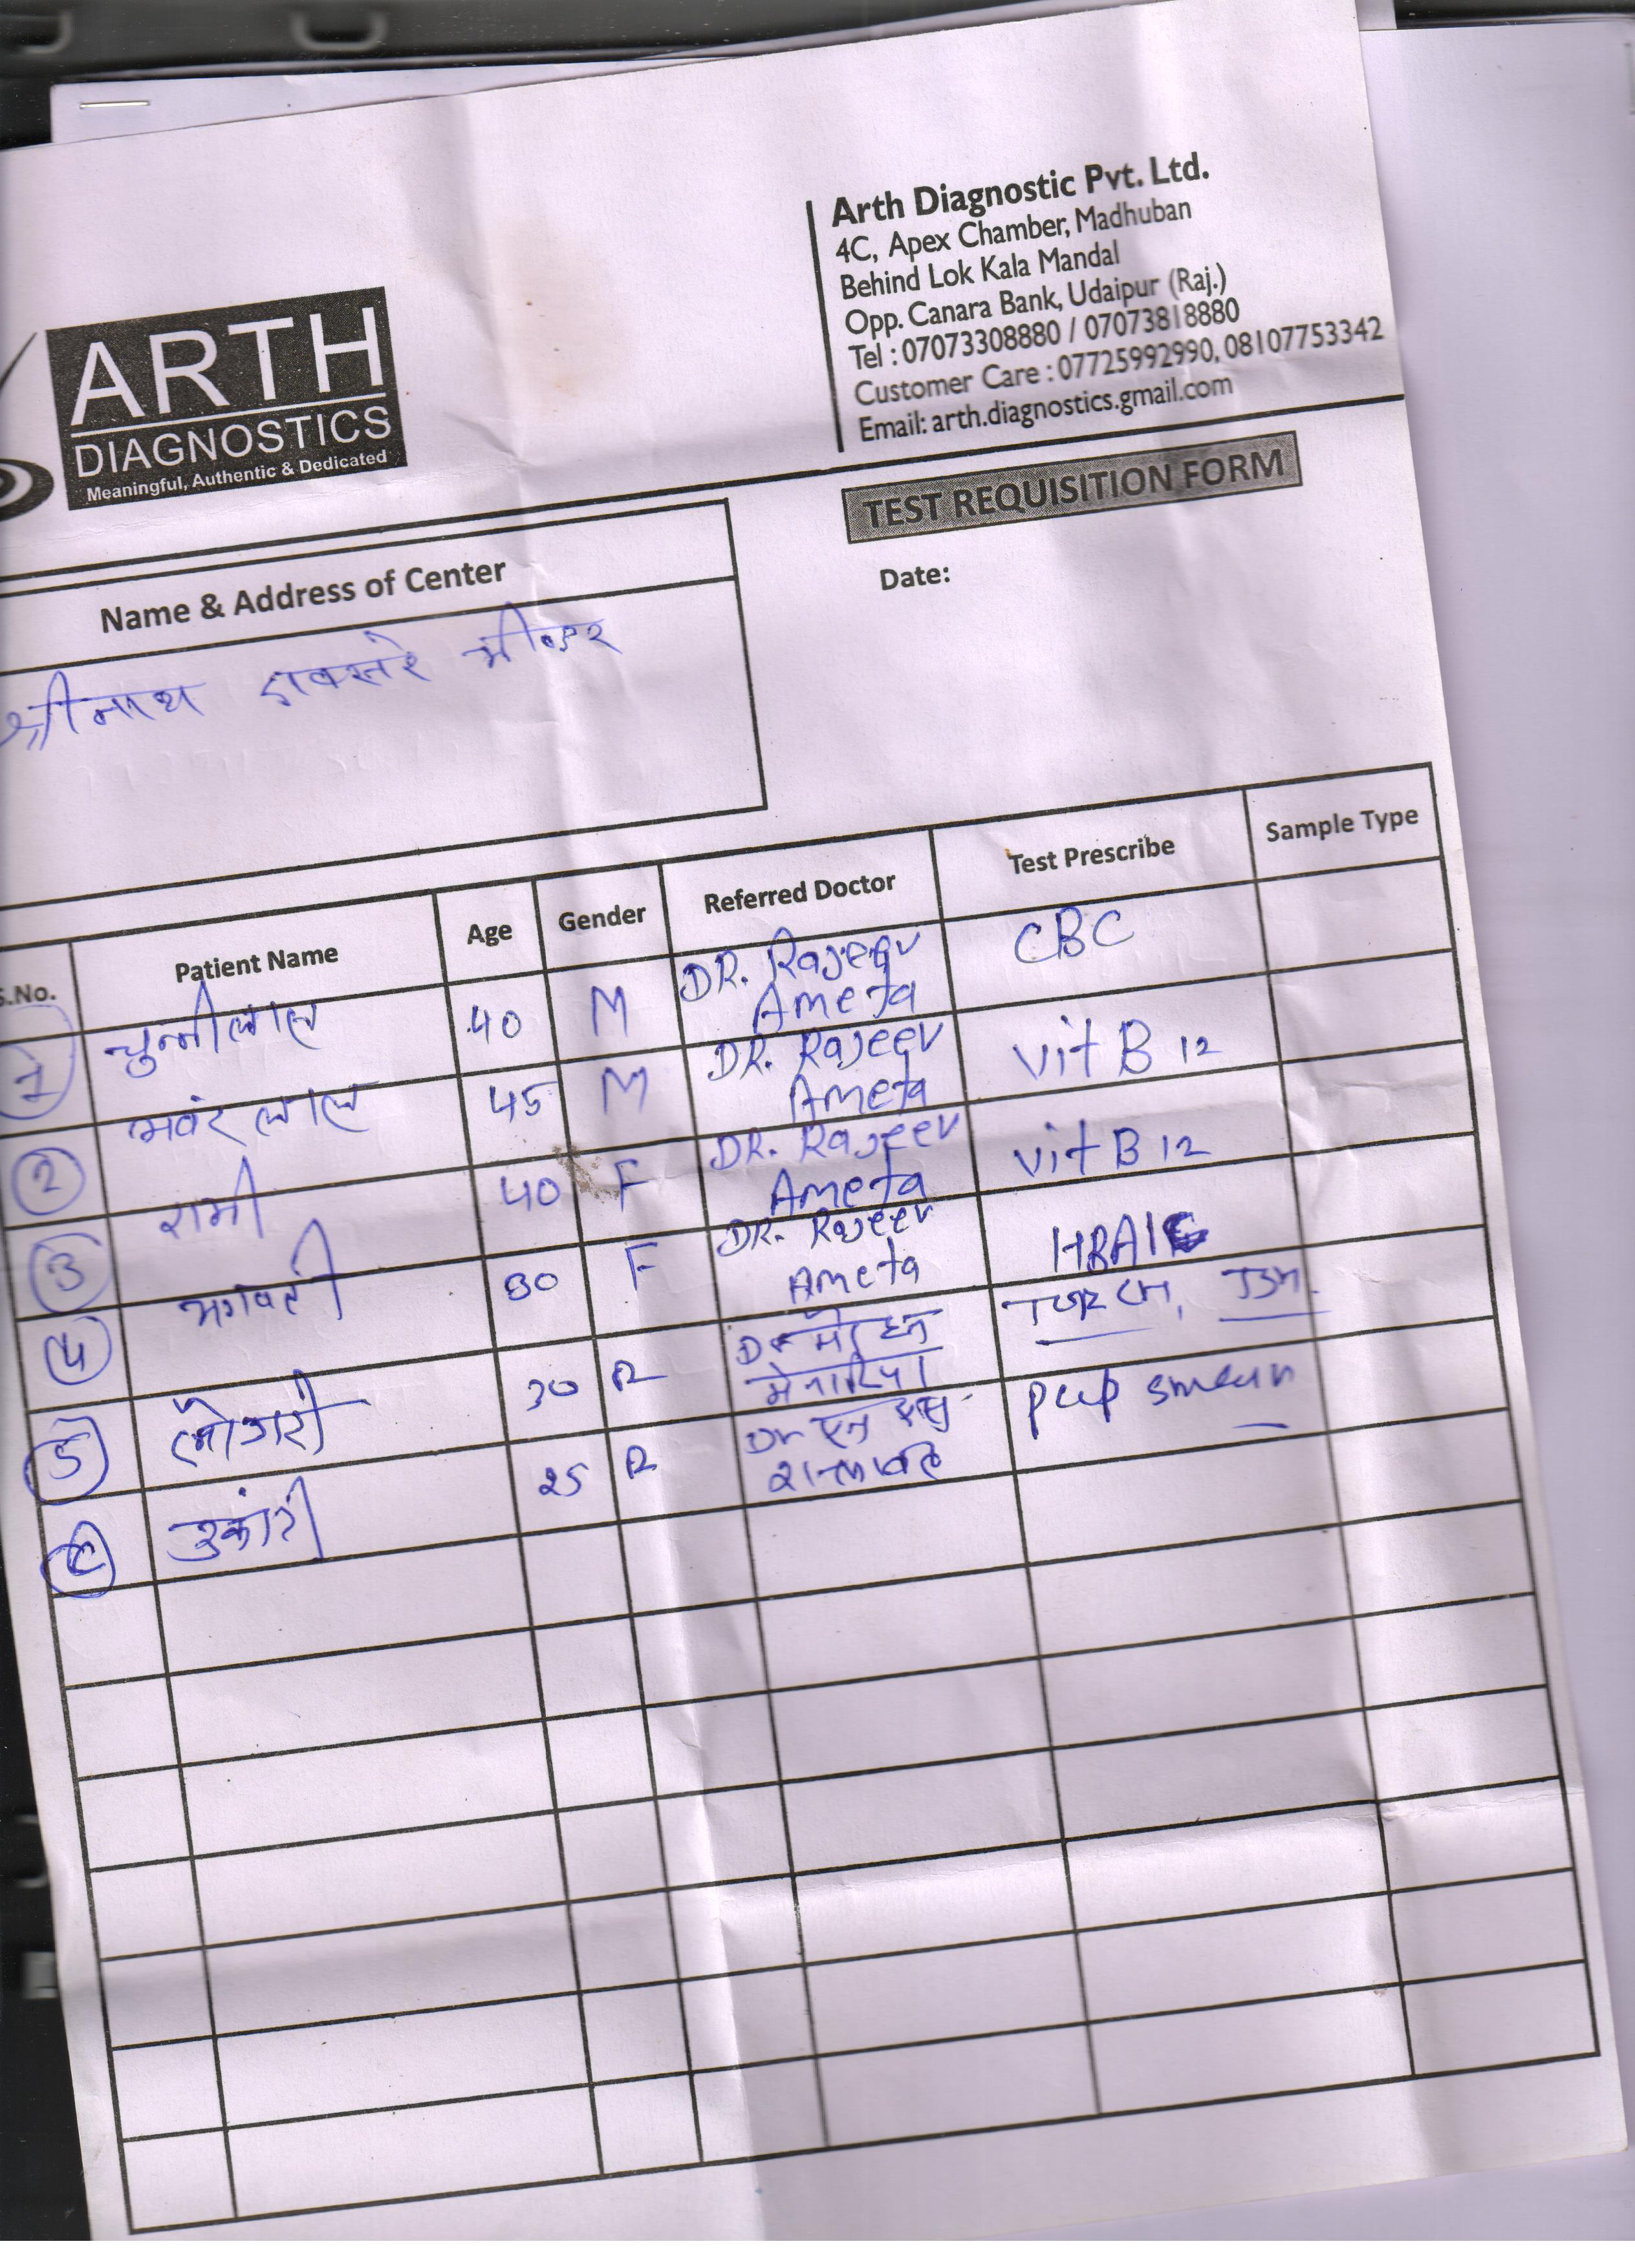 Arth Diagnostic Pvt. Ltd.
4C, Apex Chamber, Madhuban
Behind Lok Kala Mandal
Opp. Canara Bank, Udaipur (Raj.)
Tel : 07073308880 / 07073818880
Customer Care : 07725992990, 08107753342
Email: arth.diagnostics.gmail.com
ARTH
DIAGNOSTICS
Meaningful, Authentic & Dedicated
TEST REQUISITION FORM
Name & Address of Center
Date:
श्रीनाथ
S.No. Patient Name Age Gender Referred Doctor Test Prescribe Sample Type
1 चुन्नीलाल 40 M DR. Rajeev Ameta CBC
2 भवंर लाल 45 M DR. Rajeev Ameta Vit B 12
3 रामी 40 F DR. Rajeev Ameta Vit B 12
4 भगवती 80 F DR. Rajeev Ameta HBA1C
5 30 Dr मेनारिया TORCH,
25 Dr एन